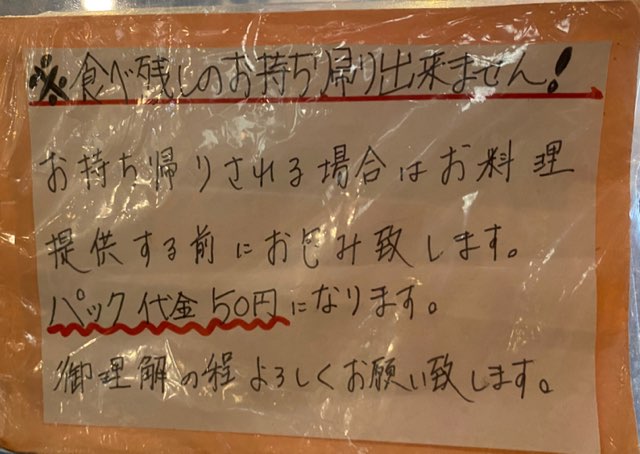 ※食べ残しのお持ち帰り出来ません!
お持ち帰りされる場合はお料理
提供する前にお包み致します。
パック代金50円になります。
御理解の程よろしくお願い致します。